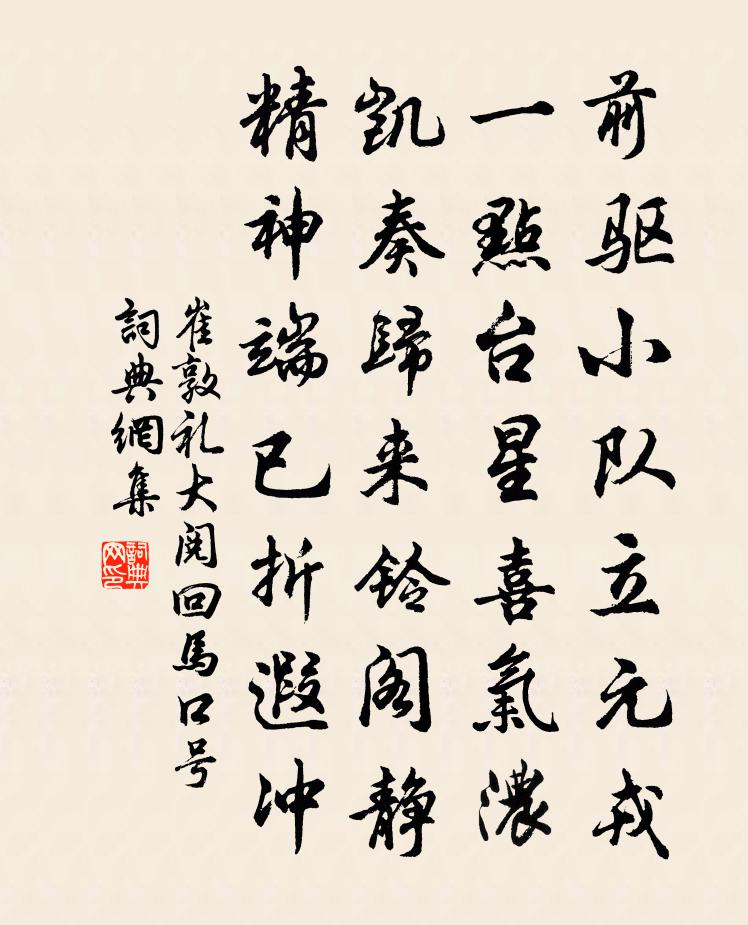 前驱小队立元戎
一點台星喜氣濃
凱奏歸来鈴阁静
精神端已折遐冲
崔敦礼大阅回馬口号
詞典網集
詞典网印